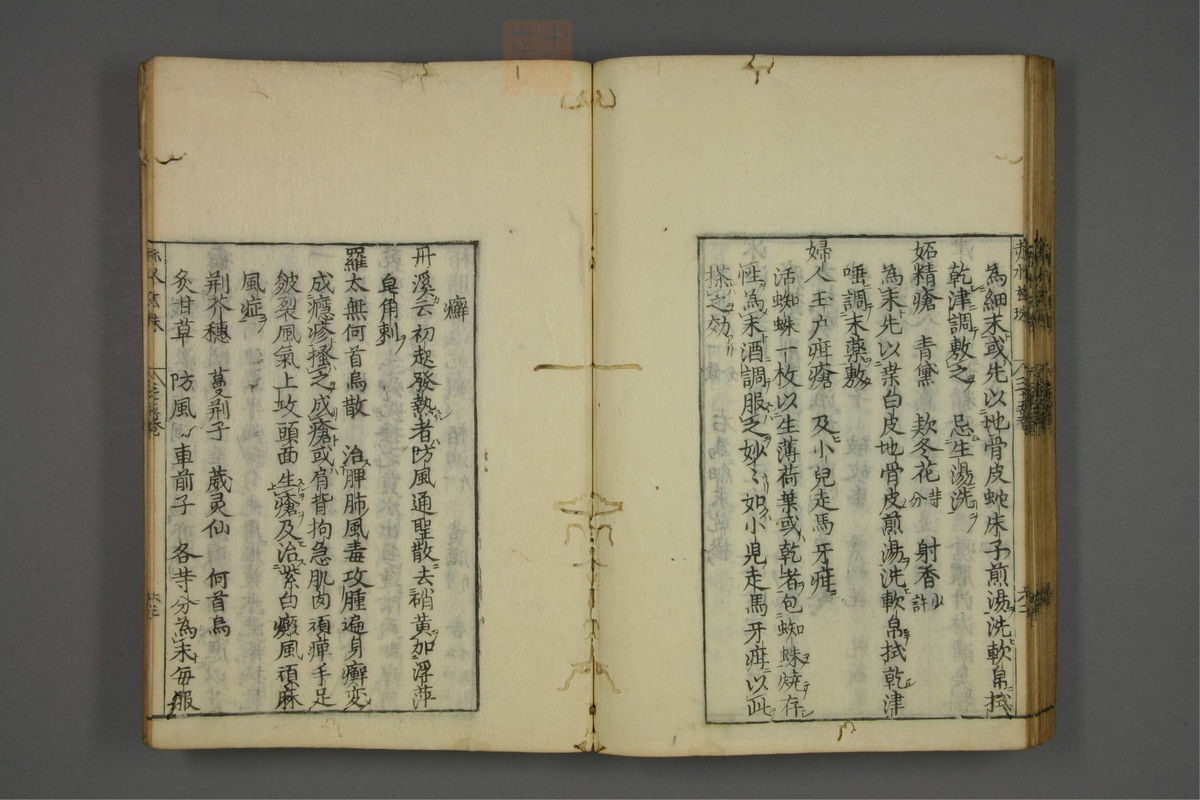 為細末或先以地骨皮蛇床子煎湯洗軟帛拭
乾津調敷之　忌生湯洗
妬精瘡　青黛　欵冬花等分　射香少許
為末先以葉白皮地骨皮煎湯洗軟帛拭乾津
唾調末藥敷
婦人玉户疳瘡　及小兒走馬牙疳
活蜘蛛一枚以生薄荷葉或乾者包蜘蛛燒存
性為末酒調服之妙〻如小児走馬牙疳以此
搽之効
癬
丹溪云初起發熱者防風通聖散去硝黄加浮萍
皂角刺
羅太無何首烏散　治脾肺風毒攻腫遍身癬变
成癮疹搔之成瘡或肩背拘急肌肉頑痺手足
皴裂風氣上攻頭面生瘡及治紫白癜風頑麻
風症
荆芥穗　蔓荆子　葳灵仙　何首烏
炙甘草　防風　車前子　各等分為末每服